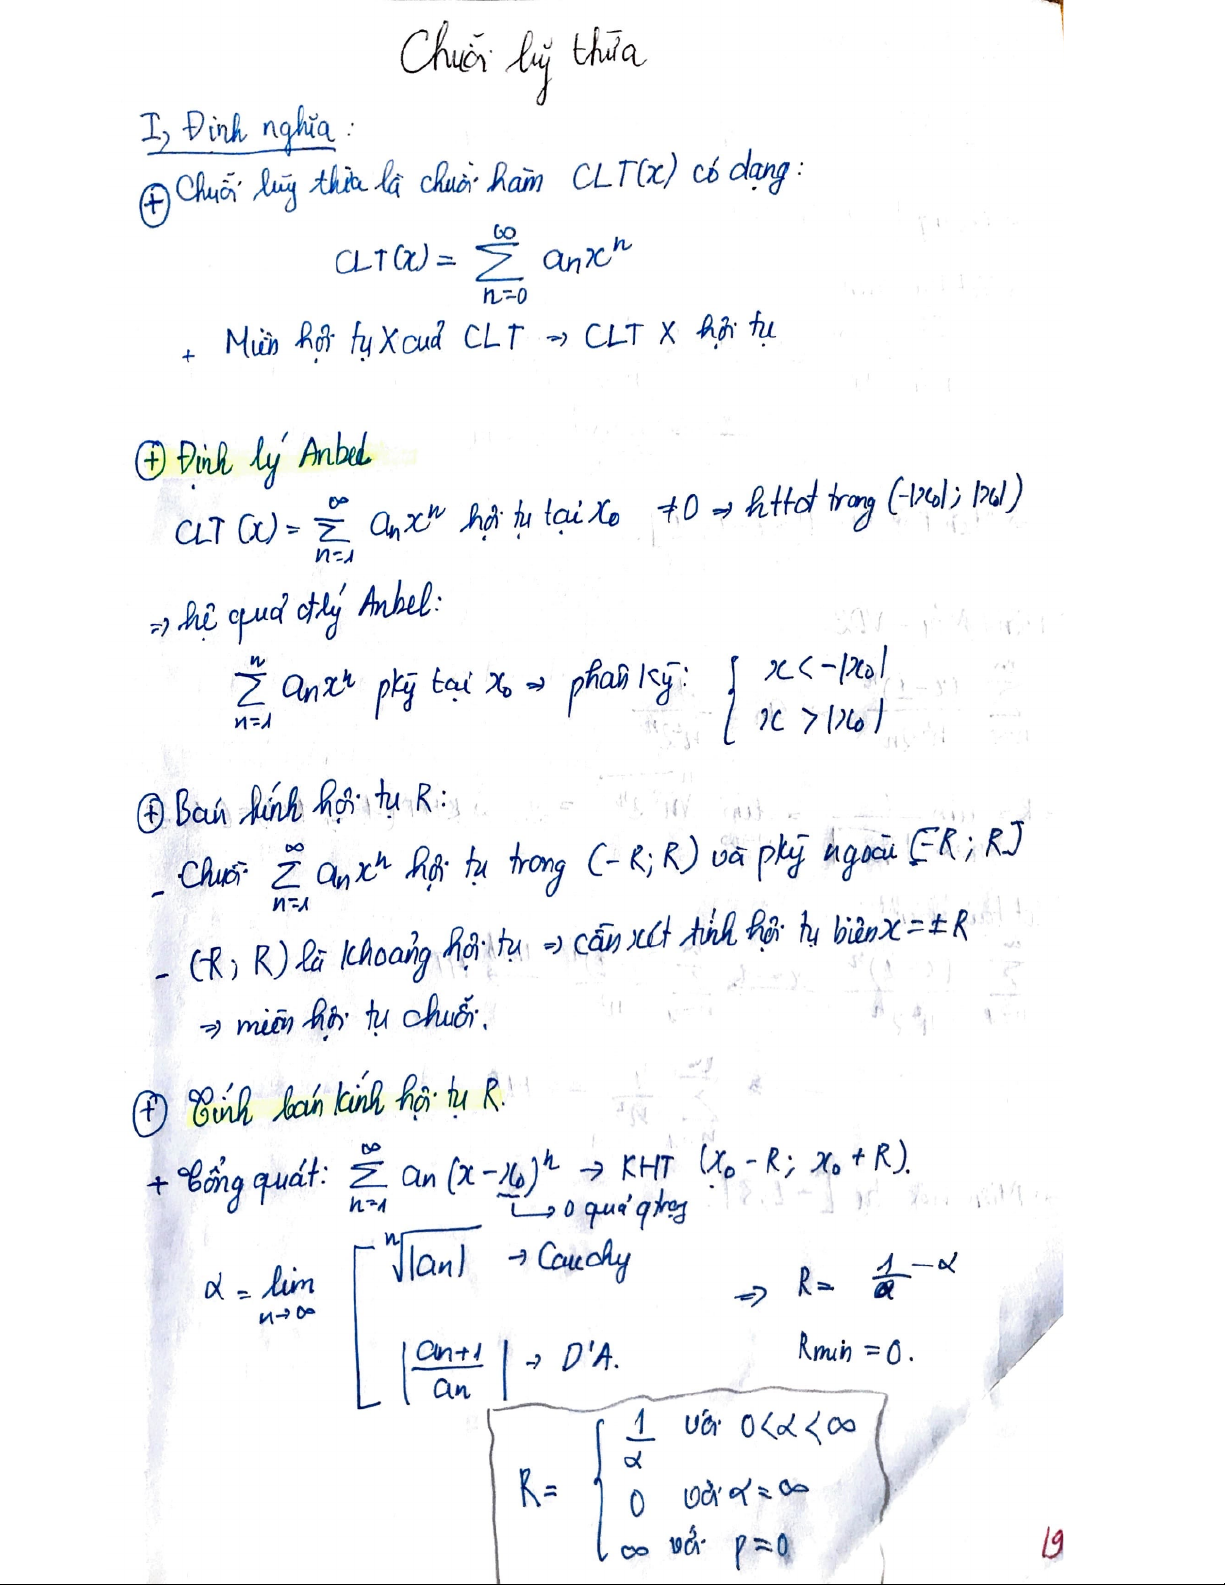 Chuỗi luỹ thừa
I, Định nghĩa:
⊕ Chuỗi luỹ thừa là chuỗi hàm CLT(x) có dạng:
CLT(x) = ∑_{n=0}^{∞} aₙxⁿ
+ Miền hội tụ X của CLT → CLT X hội tụ
⊕ Định lý Anbel
CLT (x) = ∑_{n=1}^{∞} aₙxⁿ hội tụ tại x₀ ≠ 0 → httđ trong (-|x₀|; |x₀|)
⇒ hệ quả đlý Anbel:
∑_{n=1}^{n} aₙxⁿ pkỳ tại x₀ → phân kỳ: { x < -|x₀|
x > |x₀|
⊕ Bán kính hội tụ R:
- Chuỗi ∑_{n=1}^{∞} aₙxⁿ hội tụ trong (-R; R) và pkỳ ngoài [-R; R]
- (-R; R) là khoảng hội tụ ⇒ cần xét tính hội tụ biên x = ±R
⇒ miền hội tụ chuỗi.
⊕ Tính bán kính hội tụ R.
+ Tổng quát: ∑_{n=1}^{∞} an (x - x₀)ⁿ → KHT (x₀ - R; x₀ + R).
↳ 0 quá qtrọg
α = lim_{n→∞} [ ⁿ√|an| → Cauchy
|an+1/an| → D'A.
⇒ R = 1/α - α
Rmin = 0.
R = { 1/α với 0 < α < ∞
0 với α = ∞
∞ với p = 0
19